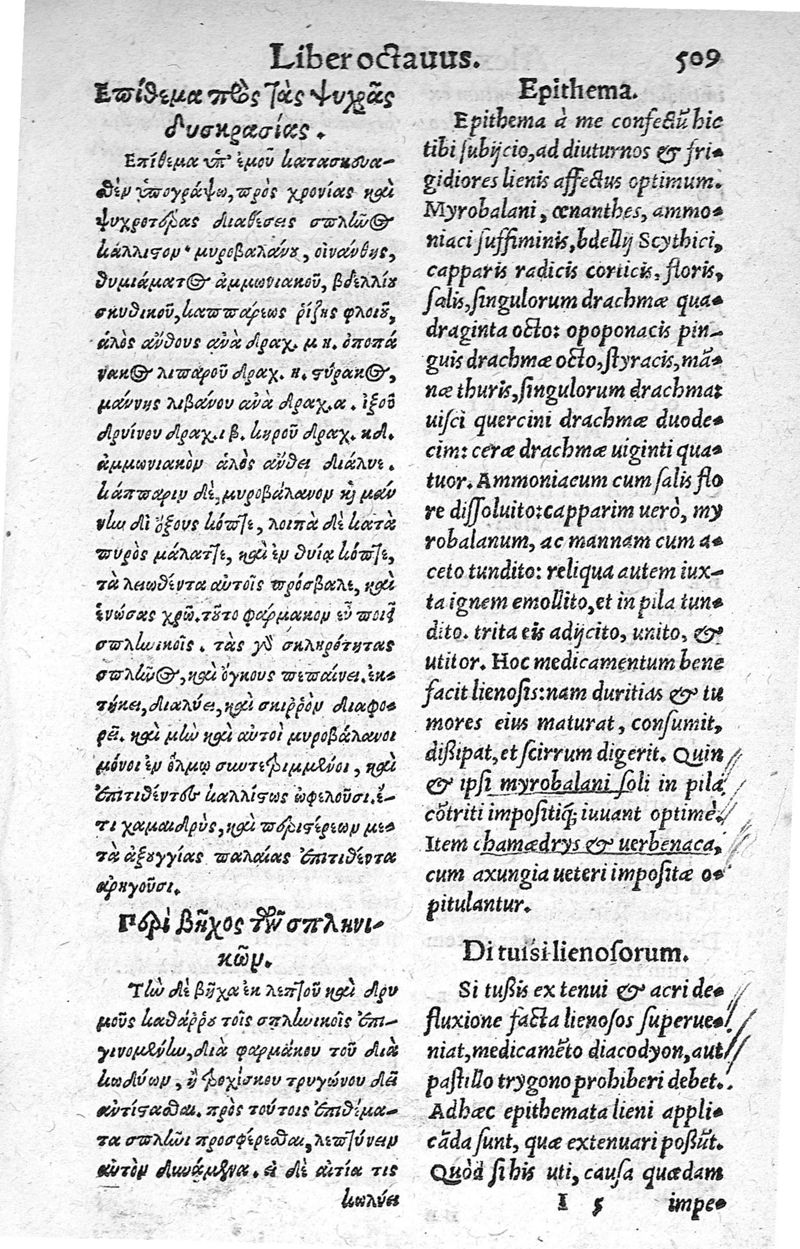 Liber octauus. 509
Επίθεμα πρὸς τὰς ψυχρὰς
δυσκρασίας.
Επίθεμα ὑπ' ἐμοῦ κατασκευα-
θὲν ὑπογράψω, πρὸς χρονίας καὶ
ψυχροτέρας διαθέσεις σπλωὸς
κάλλιστον· μυροβαλάνου, οἰνάνθης,
θυμιάματος ἀμμωνιακοῦ, βδελλίου
σκυθικοῦ, καππάρεως ῥίζης φλοιοῦ,
ἁλὸς ἄνθους ἀνὰ δραχ. μ η. ὀποπά
νακος λιπαροῦ δραχ. η. στύρακος,
μάννης λιβάνου ἀνὰ δραχ. α. ἰξοῦ
δρυίνου δραχ. ι β. κηροῦ δραχ. κδ.
ἀμμωνιακὸν ἁλὸς ἄνθει διάλυε.
κάππαριν δὲ, μυροβάλανον κỳ μάν
νlω δι' ὄξους κόπτε, λοιπὰ δὲ κατὰ
πυρὸς μάλαττε, καὶ ἐν θυίᾳ κόπτε,
τὰ λειωθέντα αὐτοῖς πρόσβαλε, καὶ
ἑνώσας χρῶ. τοῦτο φάρμακον εὖ ποιεῖ
σπλωικοῖς. τὰς γὰρ σκληρότητας
σπλωὸς, καὶ ὄγκους πεπαίνει. ἐκ-
τήκει, διαλύει, καὶ σκιῤῥὸν διαφο-
ρεῖ. καὶ μlὼ καὶ αὐτοὶ μυροβάλανοι
μόνοι ἐν ὅλμῳ συντετριμμένοι, καὶ
ἐπιτιθέντες καλλίστως ὠφελοῦσι. ἔ-
τι χαμαιδρὺς, καὶ περιστέρεων με-
τὰ ἀξουγγίας παλαιᾶς ἐπιτιθέντα
ἀρηγοῦσι.
Περὶ βῆχος τῶν σπληνι-
κῶν.
Τlὼ δὲ βῆχα ἐκ λεπτοῦ καὶ δρυ
μοῦς καθάῤῥου τοῖς σπλωικοῖς ἐπι-
γινομένlω, διὰ φαρμάκου τοῦ διὰ
κωδύων, ἢ τροχίσκου τρυγώνου δεῖ
αὐτίστασθαι. πρὸς τούτοις ἐπιθέμα-
τα σπλωὶ προσφέρεσθαι, λεπτύνειν
αὐτὸν δυνάμενα. εἰ δὲ αἰτία τις
κωλύει
Epithema.
Epithema à me confectũ hic
tibi subijcio, ad diuturnos & fri-
gidiores lienis affectus optimum.
Myrobalani, œnanthes, ammo-
niaci suffiminis, bdellij Scythici,
capparis radicis corticis, floris,
salis, singulorum drachmæ qua-
draginta octo: opoponacis pin-
guis drachmæ octo, styracis, mã-
næ thuris, singulorum drachma:
uisci quercini drachmæ duode-
cim: ceræ drachmæ uiginti qua-
tuor. Ammoniacum cum salis flo
re dissoluito: capparim uerò, my
robalanum, ac mannam cum a-
ceto tundito: reliqua autem iux-
ta ignem emollito, et in pila tun-
dito. trita eis adijcito, unito, &
utitor. Hoc medicamentum bene
facit lienosis: nam duritias & tu
mores eius maturat, consumit,
dißipat, et scirrum digerit. Quin
& ipsi myrobalani soli in pila
cõtriti impositiq́; iuuant optimè.
Item chamædrys & uerbenaca,
cum axungia ueteri impositæ o-
pitulantur.
Di tussi lienosorum.
Si tußis ex tenui & acri de-
fluxione facta lienosos superue-
niat, medicamẽto diacodyon, aut
pastillo trygono prohiberi debet.
Adhæc epithemata lieni appli-
cãda sunt, quæ extenuari possũt.
Quòd si his uti, causa quædam
I 5 impe-